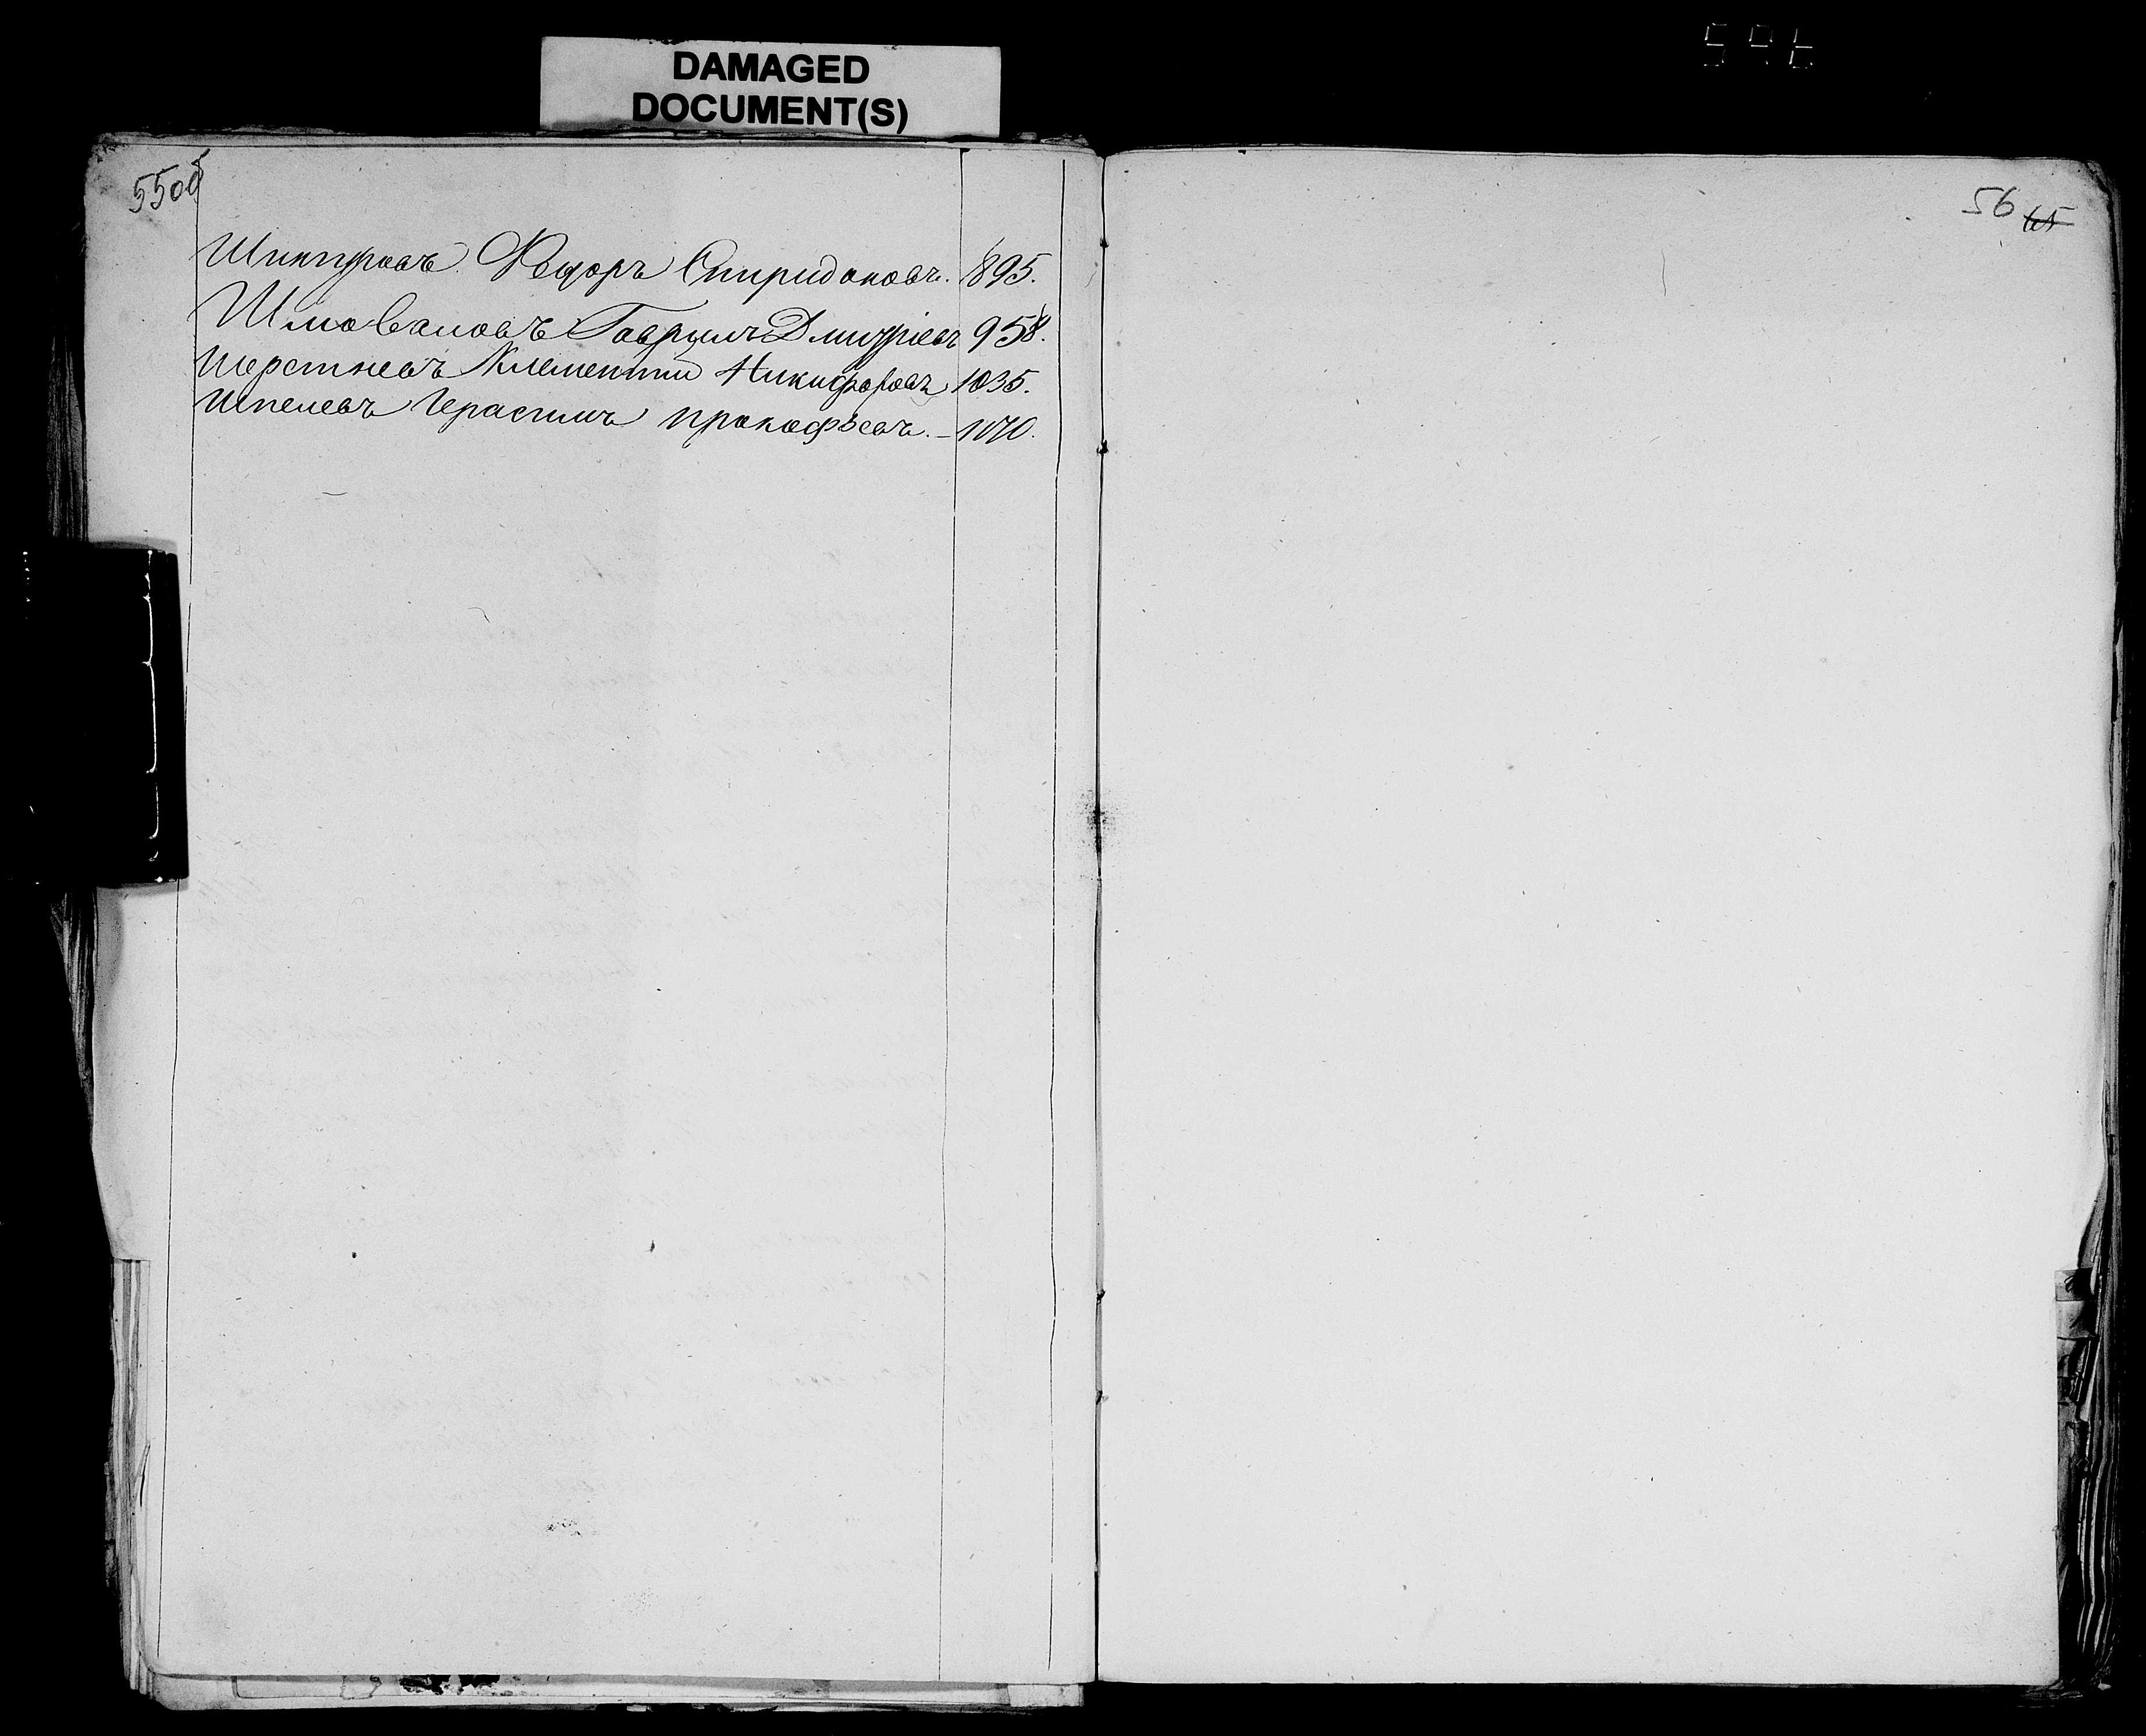 DAMAGED
DOCUMENT(S)
55об
Шкапуровъ Федоръ Спиридоновъ. 895.
Гаврилъ Дмитріевъ 958.
Шерстневъ Клементий Никифоровъ 1035.
Шпелевъ Герасимъ Прокофьевъ. – 1070.
56 65